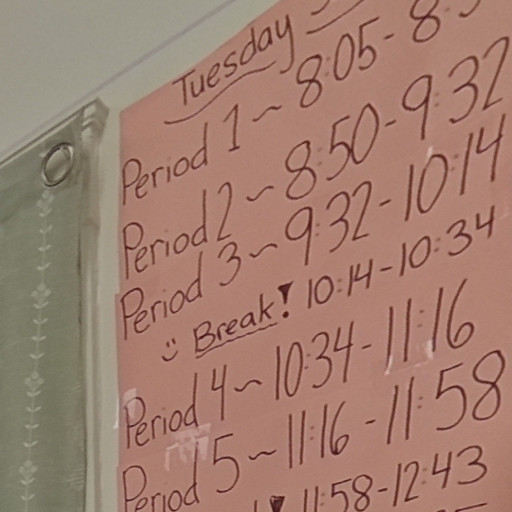 Tuesday
Period 1 ~ 8:05-8:5
Period 2 ~ 8:50-9:32
Period 3 ~ 9:32-10:14
Break! 10:14-10:34
Period 4 ~ 10:34-11:16
Period 5 ~ 11:16-11:58
11:58-12:43